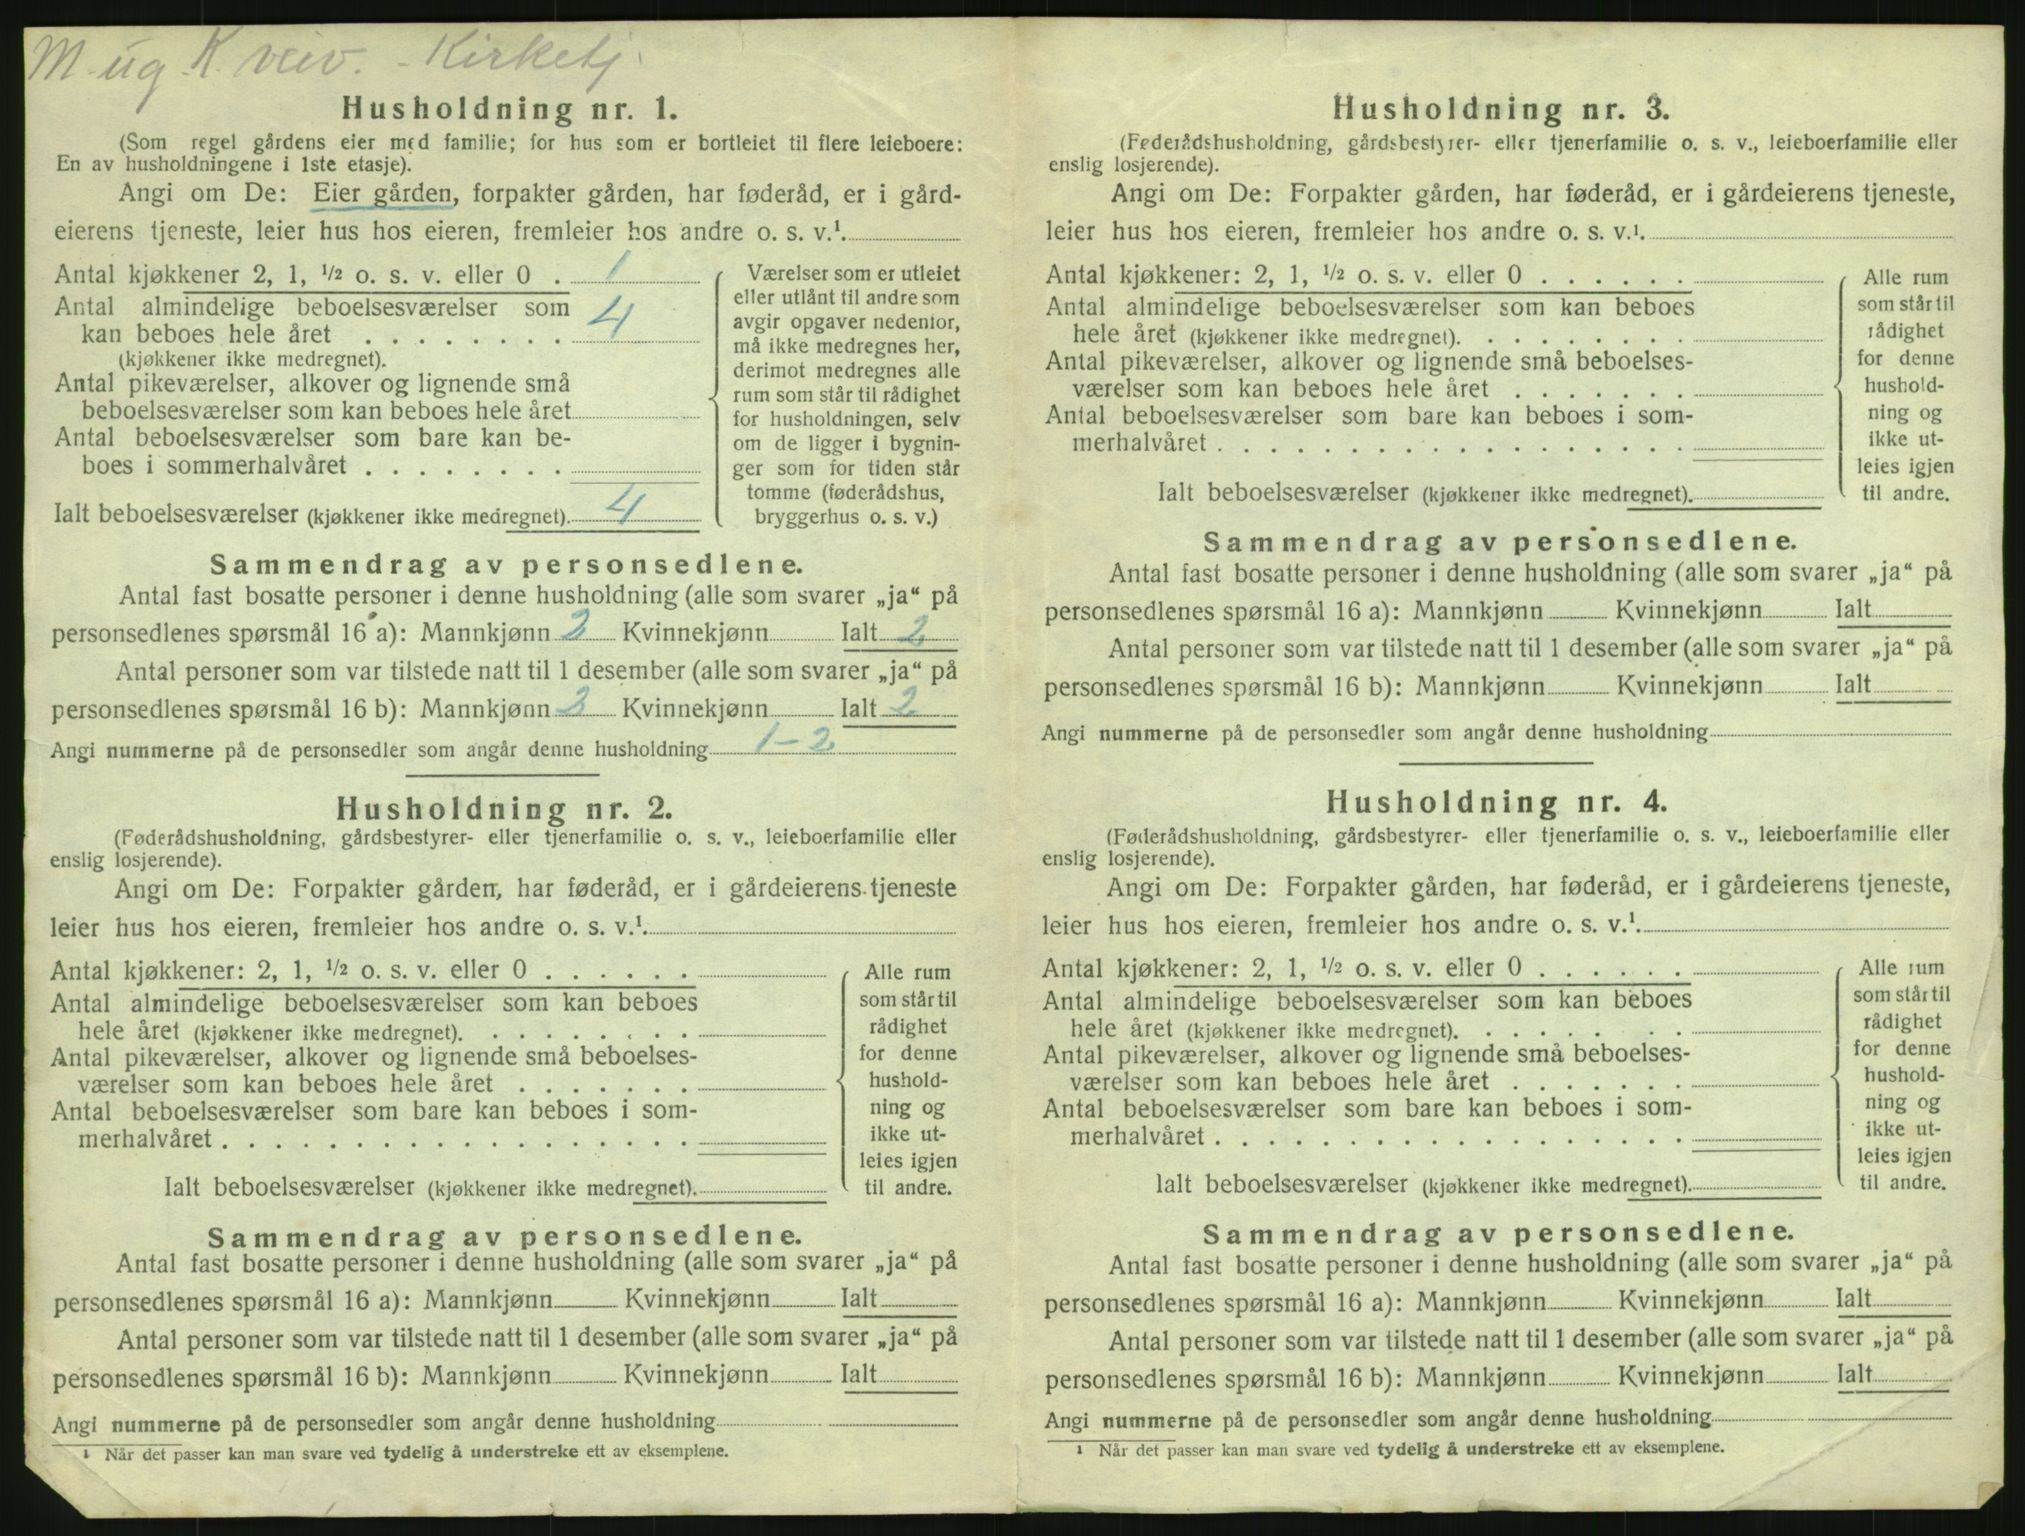 M. ug. K. veiv. - Kirketj.
Husholdning nr. 1.
(Som regel gårdens eier med familie; for hus som er bortleiet til flere leieboere:
En av husholdningene i 1ste etasje).
Angi om De: Eier gården, forpakter gården, har føderåd, er i gård-
eierens tjeneste, leier hus hos eieren, fremleier hos andre o. s. v.¹.
Antal kjøkkener 2, 1, ½ o. s. v. eller 0 . 1
Antal almindelige beboelsesværelser som
kan beboes hele året . . . . . . . . 4
(kjøkkener ikke medregnet).
Antal pikeværelser, alkover og lignende små
beboelsesværelser som kan beboes hele året
Antal beboelsesværelser som bare kan be-
boes i sommerhalvåret . . . . . . . .
Ialt beboelsesværelser (kjøkkener ikke medregnet). 4
Værelser som er utleiet
eller utlånt til andre som
avgir opgaver nedenfor,
må ikke medregnes her,
derimot medregnes alle
rum som står til rådighet
for husholdningen, selv
om de ligger i bygnin-
ger som for tiden står
tomme (føderådshus,
bryggerhus o. s. v.)
Sammendrag av personsedlene.
Antal fast bosatte personer i denne husholdning (alle som svarer „ja“ på
personsedlenes spørsmål 16 a): Mannkjønn 2 Kvinnekjønn Ialt 2
Antal personer som var tilstede natt til 1 desember (alle som svarer „ja“ på
personsedlenes spørsmål 16 b): Mannkjønn 2 Kvinnekjønn Ialt 2
Angi nummerne på de personsedler som angår denne husholdning 1-2
Husholdning nr. 2.
(Føderådshusholdning, gårdsbestyrer- eller tjenerfamilie o. s. v., leieboerfamilie eller
enslig losjerende).
Angi om De: Forpakter gården, har føderåd, er i gårdeierens tjeneste
leier hus hos eieren, fremleier hos andre o. s. v.¹.
Antal kjøkkener: 2, 1, ½ o. s. v. eller 0 . . . . . .
Antal almindelige beboelsesværelser som kan beboes
hele året (kjøkkener ikke medregnet). . . . . . . . .
Antal pikeværelser, alkover og lignende små beboelses-
værelser som kan beboes hele året . . . . . . .
Antal beboelsesværelser som bare kan beboes i som-
merhalvåret . . . . . . . . . . . . . . . . . .
Ialt beboelsesværelser (kjøkkener ikke medregnet).
Alle rum
som står til
rådighet
for denne
hushold-
ning og
ikke ut-
leies igjen
til andre.
Sammendrag av personsedlene.
Antal fast bosatte personer i denne husholdning (alle som svarer „ja“ på
personsedlenes spørsmål 16 a): Mannkjønn Kvinnekjønn Ialt
Antal personer som var tilstede natt til 1 desember (alle som svarer „ja“ på
personsedlenes spørsmål 16 b): Mannkjønn Kvinnekjønn Ialt
Angi nummerne på de personsedler som angår denne husholdning
¹ Når det passer kan man svare ved tydelig å understreke ett av eksemplene.
Husholdning nr. 3.
(Føderådshusholdning, gårdsbestyrer- eller tjenerfamilie o. s. v., leieboerfamilie eller
enslig losjerende).
Angi om De: Forpakter gården, har føderåd, er i gårdeierens tjeneste,
leier hus hos eieren, fremleier hos andre o. s. v.¹.
Antal kjøkkener: 2, 1, ½ o. s. v. eller 0 . . . . . .
Antal almindelige beboelsesværelser som kan beboes
hele året (kjøkkener ikke medregnet). . . . . . . . .
Antal pikeværelser, alkover og lignende små beboelses-
værelser som kan beboes hele året . . . . . . .
Antal beboelsesværelser som bare kan beboes i som-
merhalvåret . . . . . . . . . . . . . . . . . .
Ialt beboelsesværelser (kjøkkener ikke medregnet).
Alle rum
som står til
rådighet
for denne
hushold-
ning og
ikke ut-
leies igjen
til andre.
Sammendrag av personsedlene.
Antal fast bosatte personer i denne husholdning (alle som svarer „ja“ på
personsedlenes spørsmål 16 a): Mannkjønn Kvinnekjønn Ialt
Antal personer som var tilstede natt til 1 desember (alle som svarer „ja“ på
personsedlenes spørsmål 16 b): Mannkjønn Kvinnekjønn Ialt
Angi nummerne på de personsedler som angår denne husholdning
Husholdning nr. 4.
(Føderådshusholdning, gårdsbestyrer- eller tjenerfamilie o. s. v., leieboerfamilie eller
enslig losjerende).
Angi om De: Forpakter gården, har føderåd, er i gårdeierens tjeneste,
leier hus hos eieren, fremleier hos andre o. s. v.¹.
Antal kjøkkener: 2, 1, ½ o. s. v. eller 0 . . . . . .
Antal almindelige beboelsesværelser som kan beboes
hele året (kjøkkener ikke medregnet). . . . . . . . .
Antal pikeværelser, alkover og lignende små beboelses-
værelser som kan beboes hele året . . . . . . .
Antal beboelsesværelser som bare kan beboes i som-
merhalvåret . . . . . . . . . . . . . . . . . .
Ialt beboelsesværelser (kjøkkener ikke medregnet).
Alle rum
som står til
rådighet
for denne
hushold-
ning og
ikke ut-
leies igjen
til andre.
Sammendrag av personsedlene.
Antal fast bosatte personer i denne husholdning (alle som svarer „ja“ på
personsedlenes spørsmål 16 a): Mannkjønn Kvinnekjønn Ialt
Antal personer som var tilstede natt til 1 desember (alle som svarer „ja“ på
personsedlenes spørsmål 16 b): Mannkjønn Kvinnekjønn Ialt
Angi nummerne på de personsedler som angår denne husholdning
¹ Når det passer kan man svare ved tydelig å understreke ett av eksemplene.